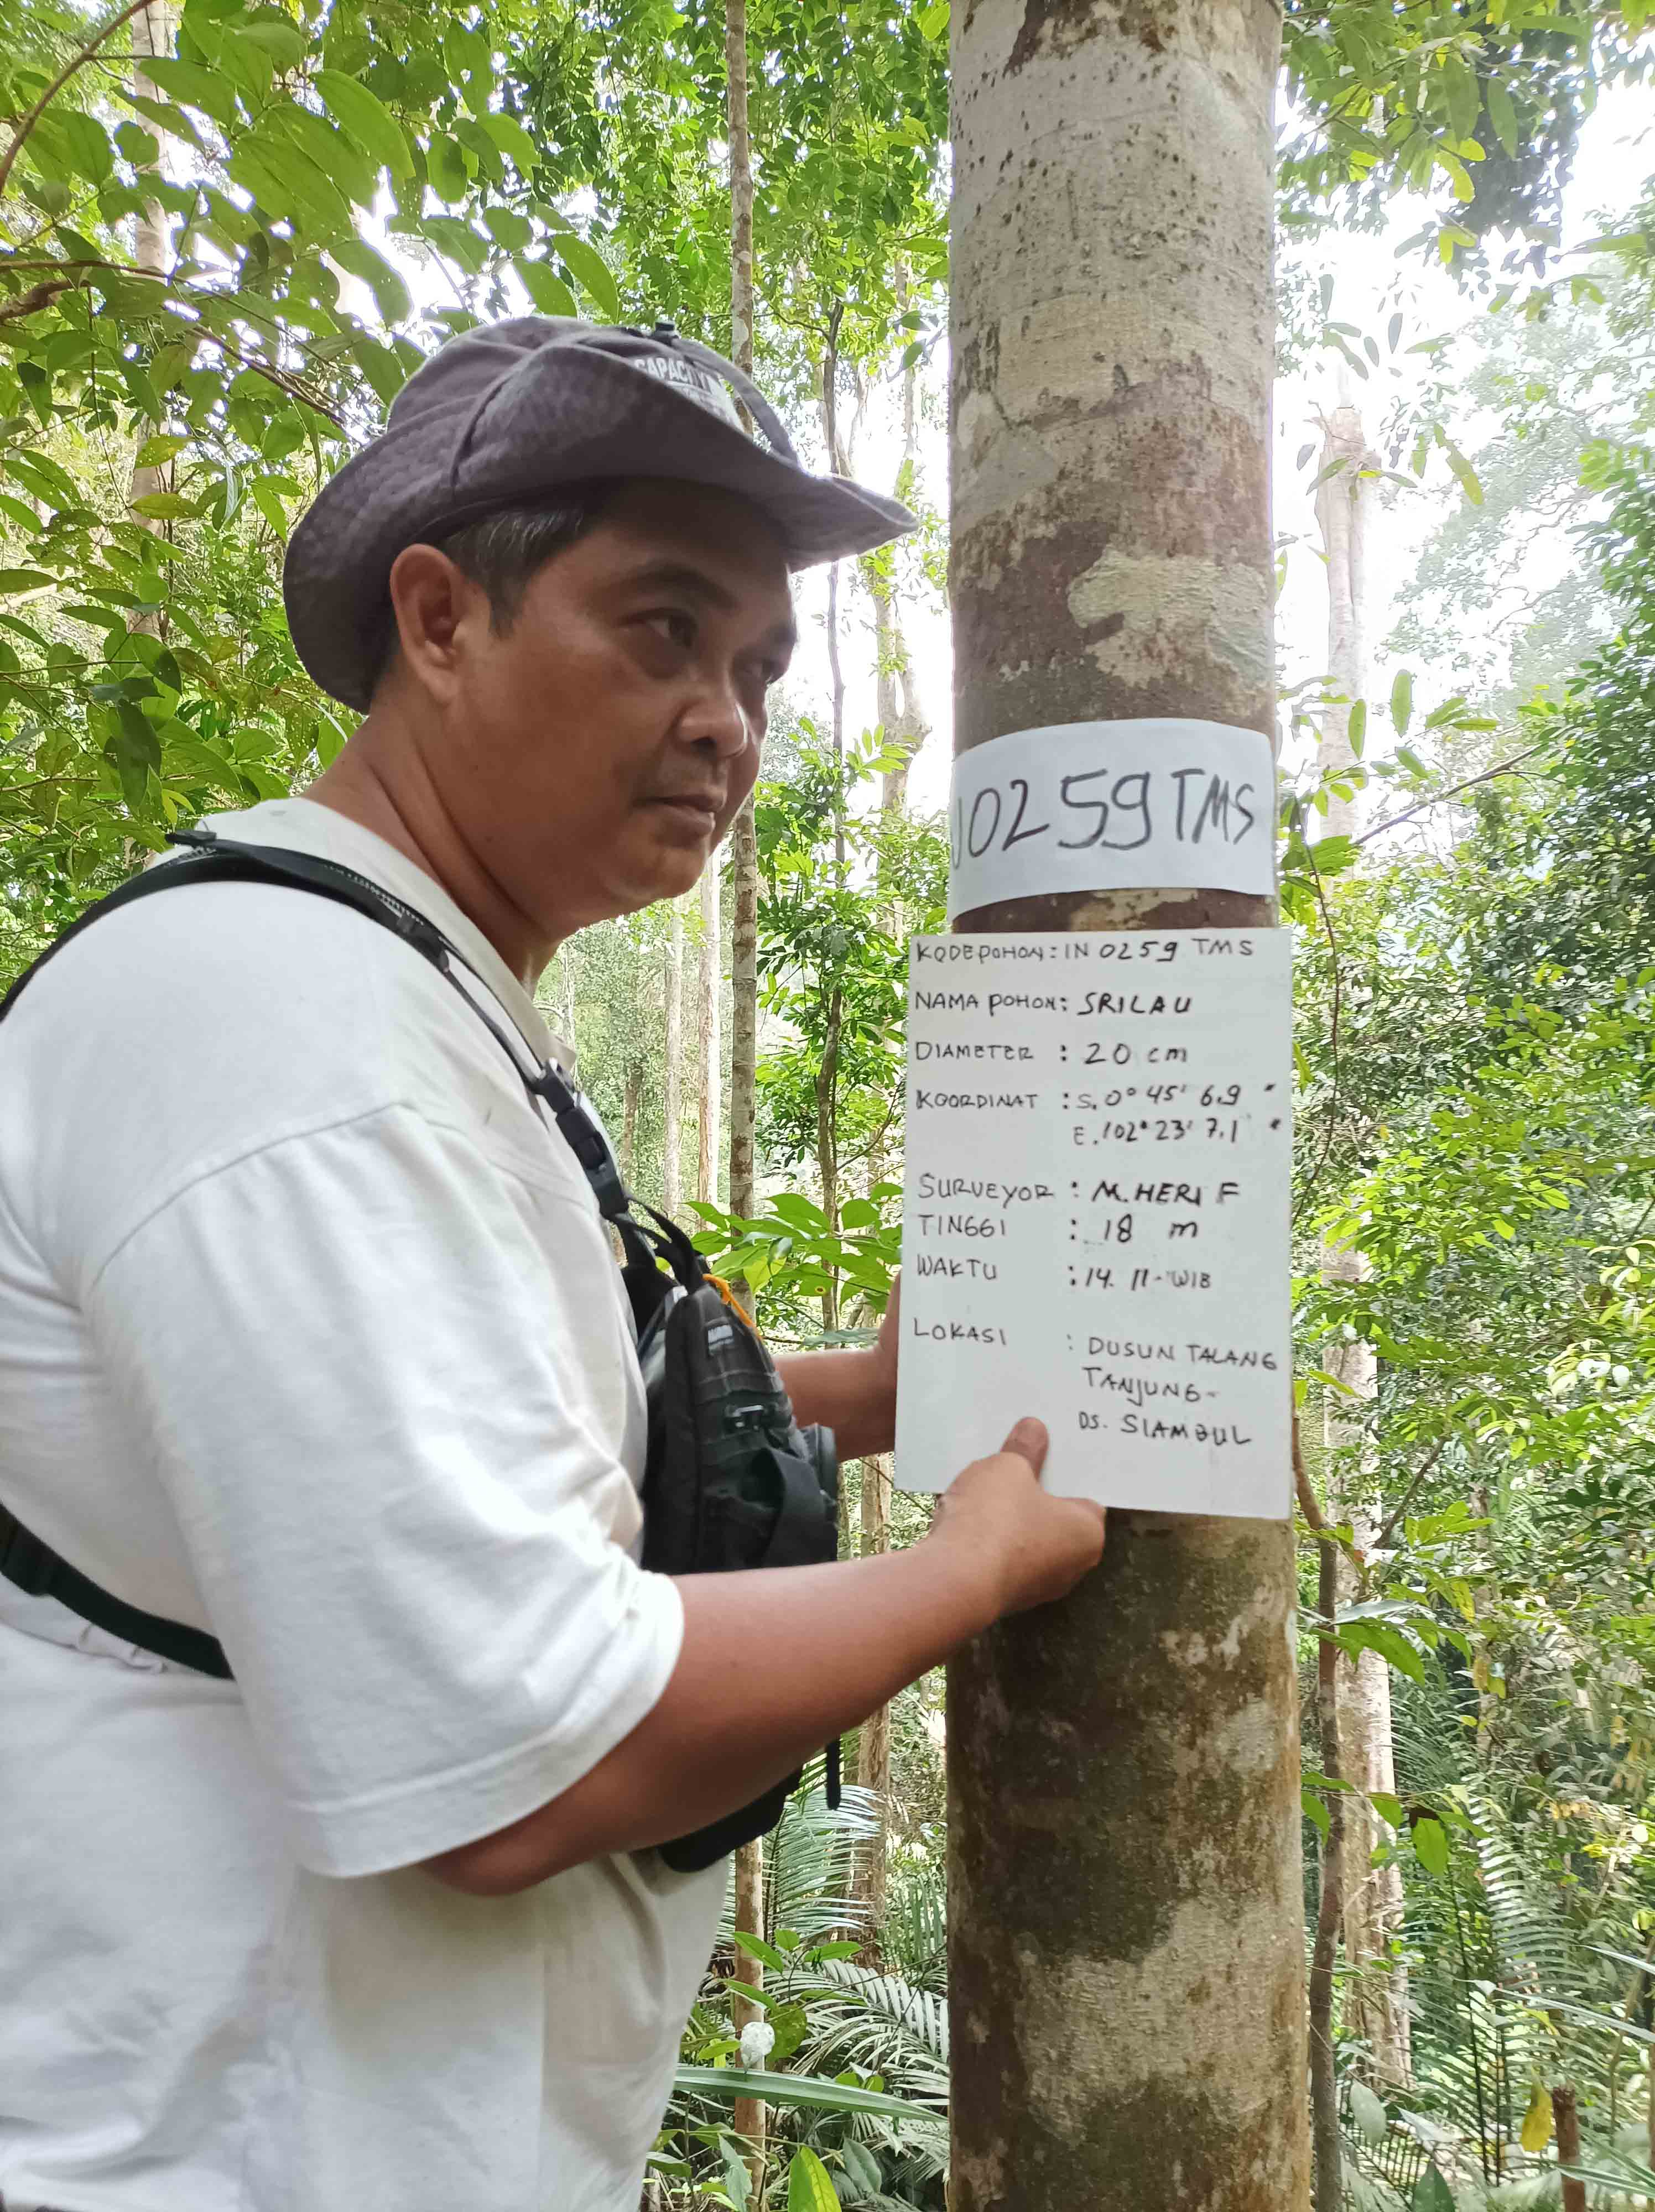 CAPACITY
0259 TMS
KODE POHON : IN 0259 TMS
NAMA POHON : SRILAU
DIAMETER : 20 cm
KOORDINAT : S. 0° 45' 6.9 "
E. 102° 23' 7.1 "
SURVEYOR : M. HERI F
TINGGI : 18 m
WAKTU : 14. 11 - WIB
LOKASI : DUSUN TALANG
TANJUNG -
DS. SIAMBUL